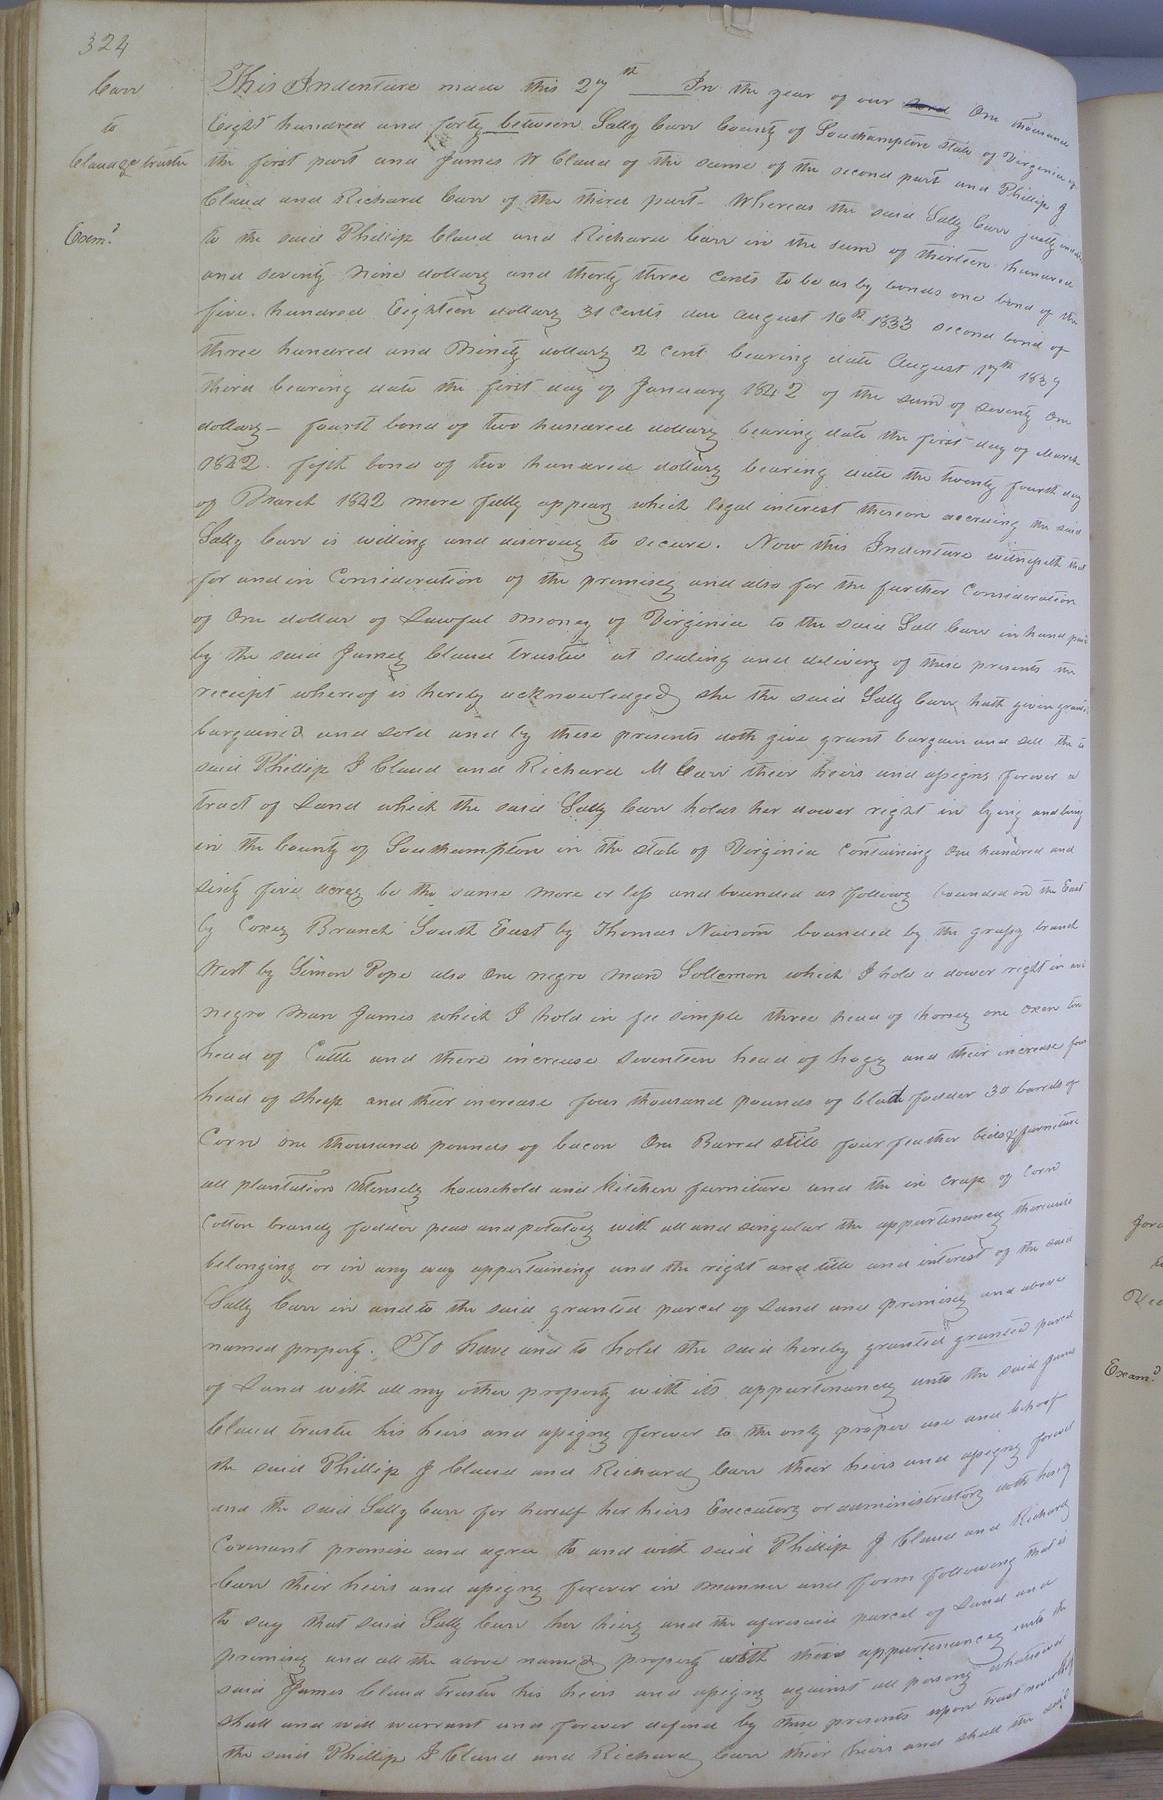 324
Carr
to
Claud &c trustee
Exam.d
This Indenture made this 27th ___ In the year of our Lord One thousand
Eight hundred and forty between Sally Carr County of Southampton State of Virginia of
the first part and James W Claud of the same of the second part and Phillip J
Claud and Richard Carr of the third part - Whereas the said Sally Carr justly
to the said Phillip Claud and Richard Carr in the sum of thirteen hundred
and seventy nine dollars and thirty three cents to be as by bonds one bond of
five hundred Eighteen dollars 31 cents due august 16th 1833 second bond of
three hundred and Ninety dollars 2 cent bearing date August 17th 1839
third bearing date the first day of January 1842 of the sum of seventy One
dollars - fourth bond of two hundred dollars bearing date the first day of March
1842. fifth bond of two hundred dollars bearing date the twenty fourth day
of March 1842 more fully appears which legal interest thereon accruing the said
Sally Carr is willing and desirous to secure. Now this Indenture witnesseth that
for and in Consideration of the premises and also for the further Consideration
of One dollar of Lawful money of Virginia to the said Sall Carr in hand paid
by the said James Claud trustee at sealing and delivery of these presents the
receipt whereof is hereby acknowledged she the said Sally Carr hath given granted
bargained and sold and by these presents doth give grant bargain and sell the
said Phillip J Claud and Richard M Carr their heirs and assigns forever a
tract of Land which the said Sally Carr holds her dower right in lying and being
in the County of Southampton in the state of Virginia Containing One hundred and
sixty five acres be the same more or less and bounded as follows bounded on the East
by Coxes Branch South East by Thomas Newsom bounded by the grassy branch
West by Simon Pope also One negro man Sollemon which I hold a dower right in
negro man James which I hold in fee simple three head of horses one oxen ten
head of Cattle and there increase seventeen head of hogs and their increase four
head of sheep and their increase four thousand pounds of blad fodder 30 barrels of
Corn one thousand pounds of bacon One Barrel still four feather beds & furniture
all plantation Utensels household and kitchen furniture and the in crop of Corn
Cotton brandy fodder peas and potatoes with all and singular the appurtenances thereunto
belonging or in any way appertaining and the right and title and interest of the said
Sally Carr in and to the said granted parcel of Land and premises and above
named property. To have and to hold the said hereby granted granted parcel
of Land with all my other property with its appurtenances unto the said James
Claud trustee his heirs and assigns forever to the only proper use and behoof
the said Phillip J Claud and Richard Carr their heirs and assigns forever
and the said Sally Carr for herself her heirs Executors or administrators doth hereby
Covenant promise and agree to and with said Phillip J Claud and Richard
Carr their heirs and assigns forever in manner and form following that is
to say that said Sally Carr her heirs and the aforesaid parcel of Land and
premises and all the above named property with their appurtenances unto the
said James Claud trustee his heirs and assigns against all persons whatsoever
shall and will warrant and forever defend by these presents upon trust nevertheless
the said Phillip J Claud and Richard Carr their heirs and shall the said
Exam.d